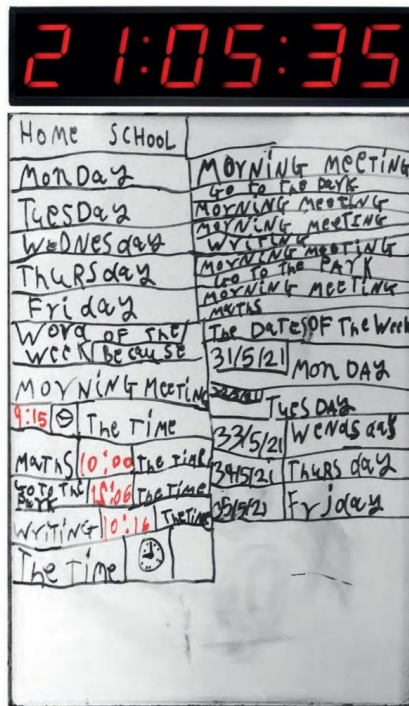 21:05:35
HOME SCHOOL
MonDay
TuesDay
WeDNesday
ThuRSday
Friday
WorD OF The
Week Because
MOrNiNG MeeTiNG
9:15 The Time
MaThS 10:00 The Time
GO TO The
PaRK The Time
WriTiNG 10:16 The Time
The Time
MOrNiNG MeeTiNG
GO to the Park
MorNiNG MeeTiNG
MorNiNG MeeTiNG
WriTiNG
MorNiNG MeeTiNG
GO TO The PARK
MorNiNG MeeTiNG
MaThs
The DaTeS OF The Week
31/5/21 MonDAY
TuesDAY
33/5/21 Wendsday
34/5/21 ThuRSday
35/5/21 Friday